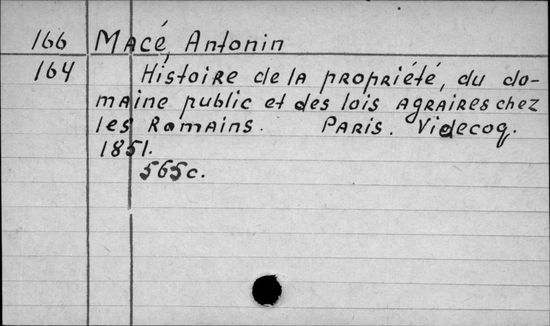 166 Macé, Antonin
164 Histoire de la propriété, du do-
maine public et des lois agraires chez
les Romains. Paris. Videcoq.
1851.
565c.